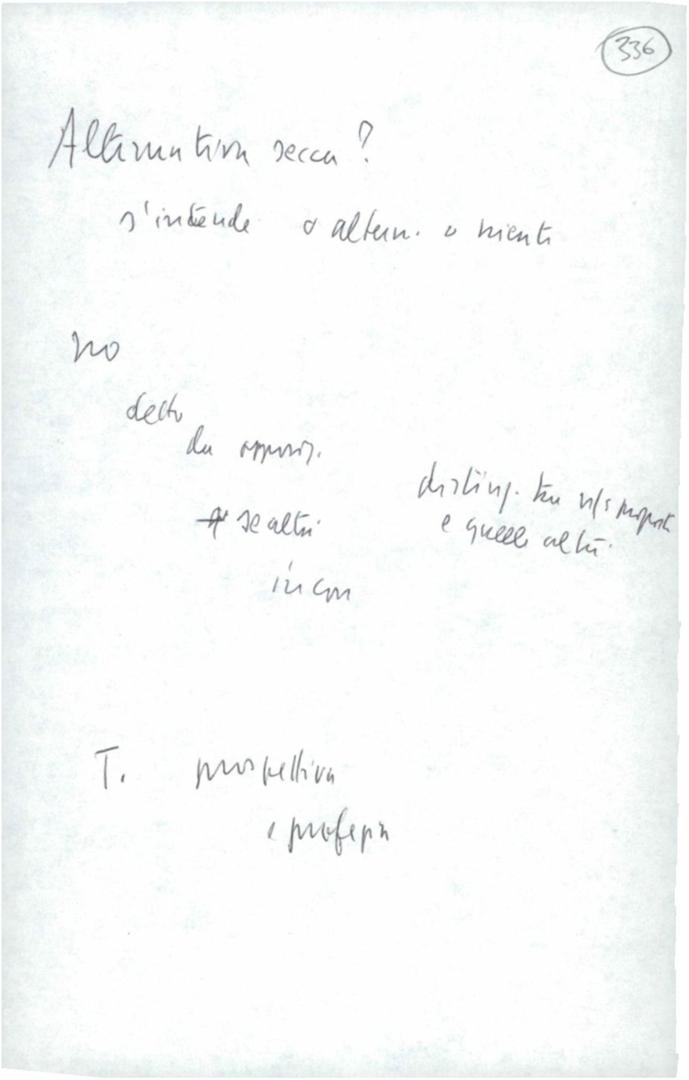 336
Alternativa secca?
s'intende o altern. o niente
no
detto
da opposiz.
se altri
disting. tra n/s proposte
e quelle altri
in con
T. prospettiva
e